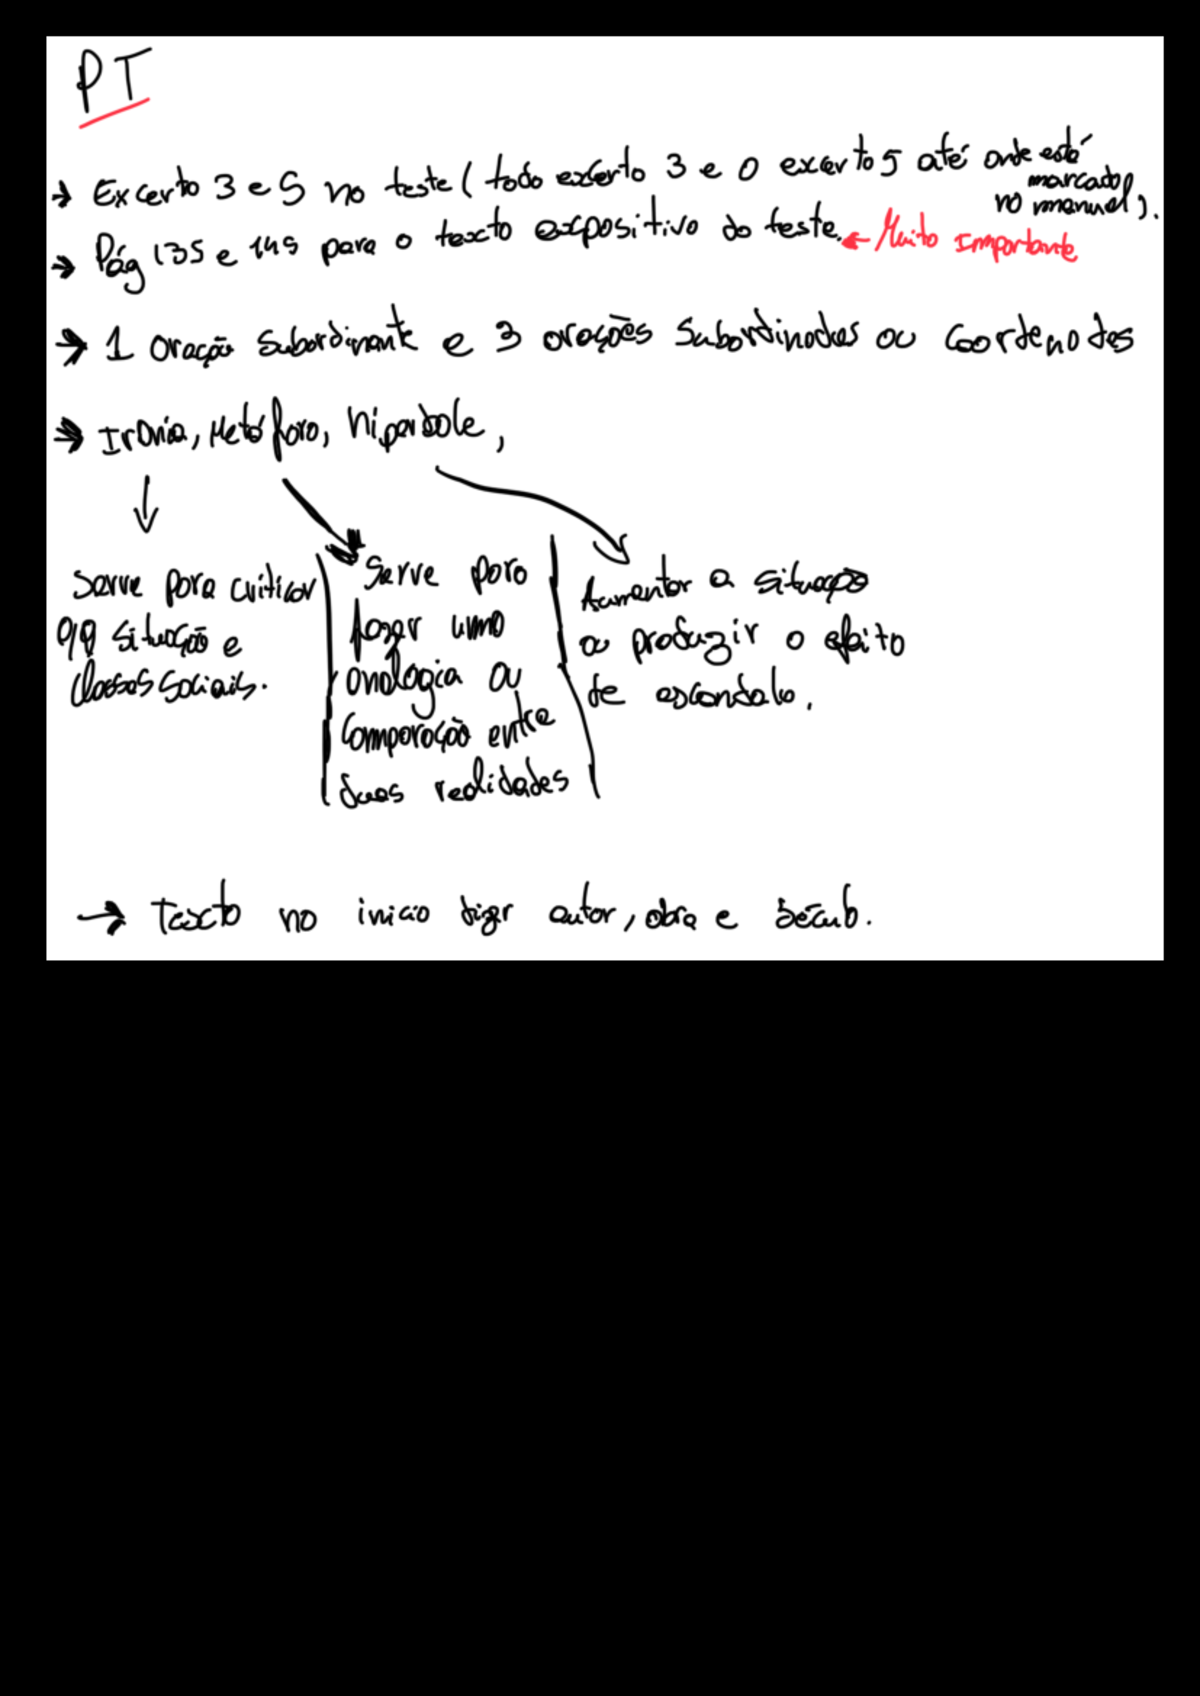 PT
→ Excerto 3 e 5 no teste (todo excerto 3 e o excerto 5 até onde está
marcado
no manuel).
→ Pág 135 e 145 para o texto expositivo do teste. ← Muito Importante
→ 1 oração subordinante e 3 orações subordinadas ou coordenadas
→ Ironia, Metáfora, hiperbole,
Serve para criticar
situação e
classes sociais.
Serve para
fazer uma
analogia ou
comparação entre
duas realidades
Aumentar a situação
ou produzir o efeito
de escandalo.
→ Texto no inicio dizer autor, obra e século.